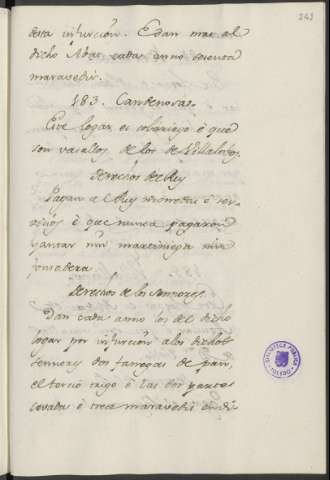 243
desta infurción. E dan mas al
dicho Abat cada anno sesenta
maravedis.
183. Cardenosa.
Este logar es solariego è que
son vasallos de los de Villalobos.
Derechos del Rey
Pagan al Rey monedas è ser-
vicios è que nunca pagaron
yantar nin martiniega nin
fonsadera.
Derechos de los Sennores.
Dan cada anno los del dicho
logar por infurción a los dichos
sennores dos fanegas de pan,
el tercio trigo è las dos partes
cevada è trece maravedis en di-
BIBLIOTECA PUBLICA
TOLEDO